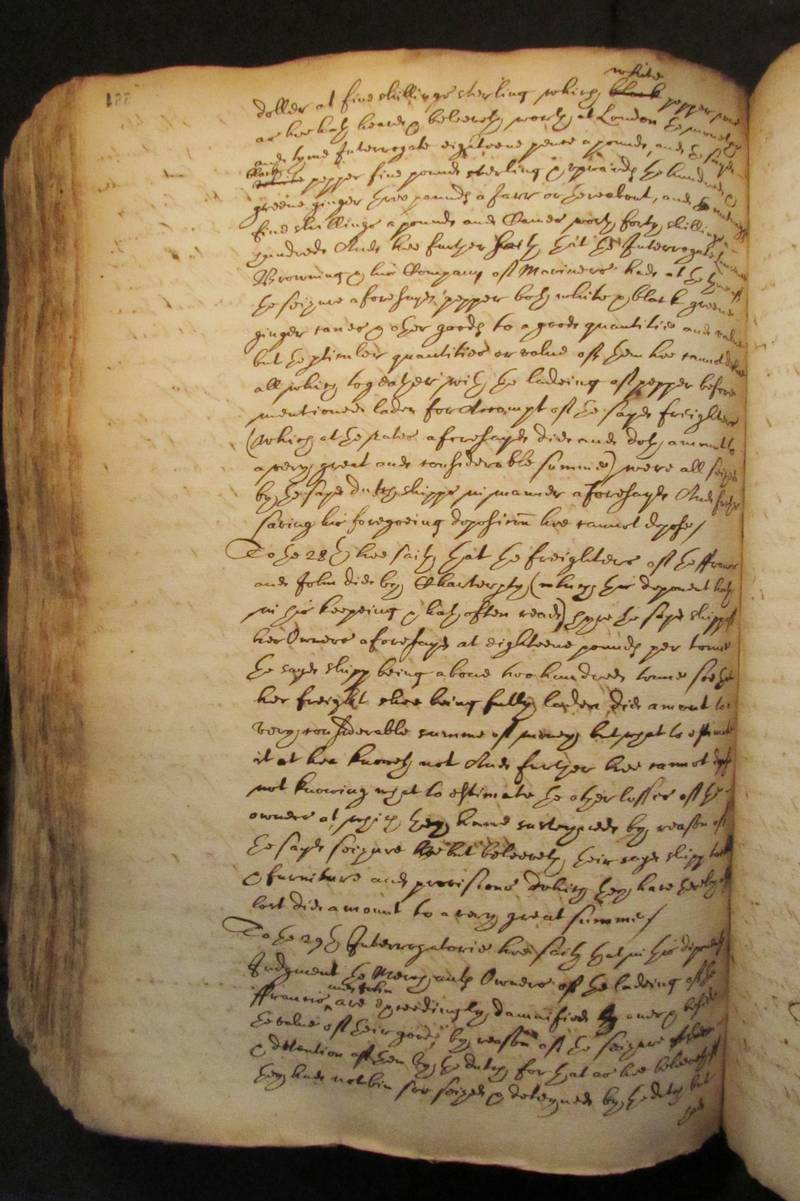 doller at five shillings sterling which white black pepper
as hee hath heard & beleeveth worth at London the
and tyme Interrogate eighteene pence a pound, and the sayd
black white pepper five pounds sterling & upwards the hundred, &
greene ginger three pounds a Jarr or thereabout, and
five shillings a pound and Canes worth forty shillings a
hundred And hee further saith that the Interrogate
Browning & his Company of Mariners had at the tyme of
the seizure aforesayd, pepper both white & black greene
ginger canes & other goods to a good quantitie and value
but the perticuler quantities or value of them hee cannot
all which togeather with the ladeing of pepper before
mentioned laden for Accompt of the sayd freighters
(which at the rates aforesayd did and doth amount to
a very great and considerable summe) were all seized
by the sayd dutch shipps in manner aforesayd And further
saving his foregoeing deposition hee cannot depose/
To the 28th hee saith that the freighters of the ffrancis
and John did by Charterparty (which this deponent hath
in his keepeing & hath often read) hyre the sayd shipp of
her Owners aforesayd at eighteene pounds per tonne
the sayd shipp being above two hundred tonnes soe that
her freight shee being fully laden did amount to
very considerable summe of money but what to estimate
it at hee knoweth not And further hee cannot depose
not knowing what to estimate the other losses of the
owners at which they have susteyned by reason of
the sayd seizure but beleeveth their sayd shipp
& furniture and provisions which they have thereby
lost did amount to a very great summe/
To the 29th Interrogatorie hee saith that in his deponents
Judgment the Merchants Owners of the ladeing of the
ffrancis and John are exceedingly damnified and &
the value of their goods by reason of the seizure
& detention of them by the dutch for that as hee beleeveth if
they had not bin soe seized & deteyned by the dutch but